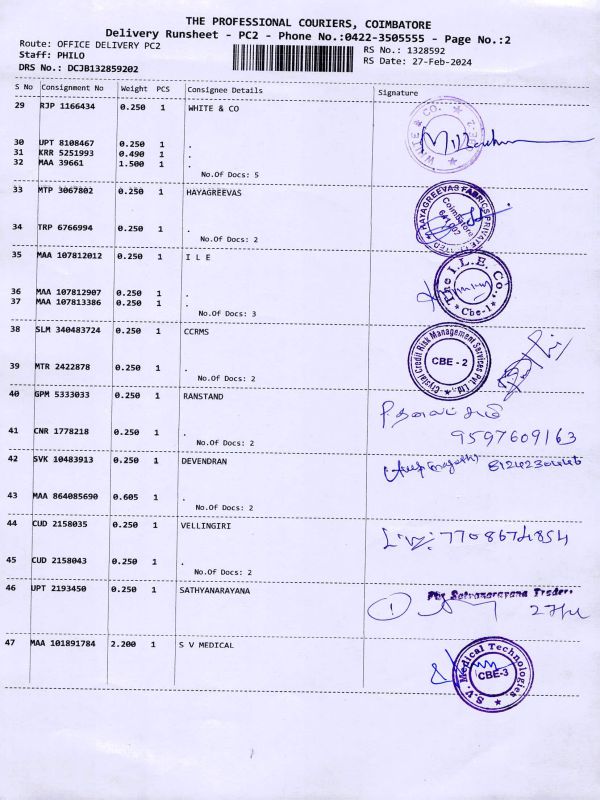 THE PROFESSIONAL COURIERS, COIMBATORE
Delivery Runsheet - PC2 - Phone No.:0422-3505555 - Page No.:2
Route: OFFICE DELIVERY PC2 RS No.: 1328592
Staff: PHILO RS Date: 27-Feb-2024
DRS No.: DCJB132859202
S No Consignment No Weight PCS Consignee Details Signature
29 RJP 1166434 0.250 1 WHITE & CO
WHITE & CO.
30 UPT 8108467 0.250 1 .
31 KRR 5251993 0.490 1 .
32 MAA 39661 1.500 1 .
No.Of Docs: 5
33 MTP 3067802 0.250 1 HAYAGREEVAS
HAYAGREEVAS FABRICS PRIVATE LIMITED
Coimbatore
641002
34 TRP 6766994 0.250 1 .
No.Of Docs: 2
35 MAA 107812012 0.250 1 I L E
The I.L.E. Co. Cbe-1
36 MAA 107812907 0.250 1 .
37 MAA 107813386 0.250 1 .
No.Of Docs: 3
38 SLM 340483724 0.250 1 CCRMS
Crystal Credit Risk Management Services Pvt. Ltd.
CBE - 2
39 MTR 2422878 0.250 1 .
No.Of Docs: 2
40 GPM 5333033 0.250 1 RANSTAND
41 CNR 1778218 0.250 1 . 9597609163
No.Of Docs: 2
42 SVK 10483913 0.250 1 DEVENDRAN
43 MAA 864085690 0.605 1 .
No.Of Docs: 2
44 CUD 2158035 0.250 1 VELLINGIRI 7708674854
45 CUD 2158043 0.250 1 .
No.Of Docs: 2
46 UPT 2193450 0.250 1 SATHYANARAYANA
For Satyanarayana Trader
1
47 MAA 101891784 2.200 1 S V MEDICAL
S.V. Medical Technologies.
CBE-3